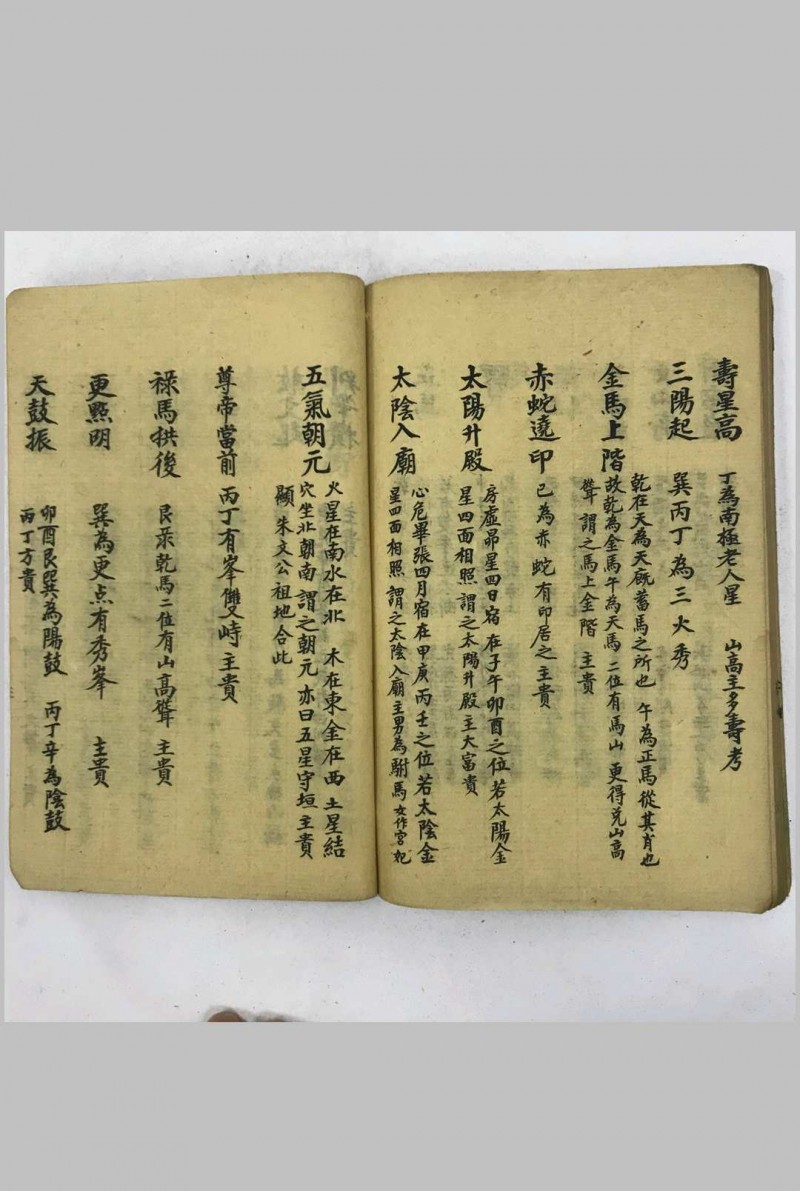 壽星高 丁為南極老人星 山高主多壽考
三陽起 巽丙丁為三火秀
金馬上階 乾在天為天厩蓄馬之所也 午為正馬從其肖也
故乾為金馬午為天馬 二位有馬山 更得兊山高
聳 謂之馬上金階 主貴
赤蛇遶印 巳為赤蛇有印居之主貴
太陽升殿 房虛昴星四日宿 在子午卯酉之位若太陽金
星四面相照 謂之太陽升殿主大富貴
太陰入廟 心危畢張四月宿在甲庚丙壬之位若太陰金
星四面相照 謂之太陰入廟主男為駙馬女作宮妃
五氣朝元 火星在南水在北 木在東金在西 土星結
穴坐北朝南謂之朝元亦曰五星守垣主貴
顯 朱文公祖地合此
尊帝當前 丙丁有峯雙峙主貴
祿馬拱後 艮彔乾馬二位有山高聳主貴
更點明 巽為更点有秀峯 主貴
天鼓振 卯酉艮巽為陽鼓 丙丁辛為陰鼓
丙丁方貴